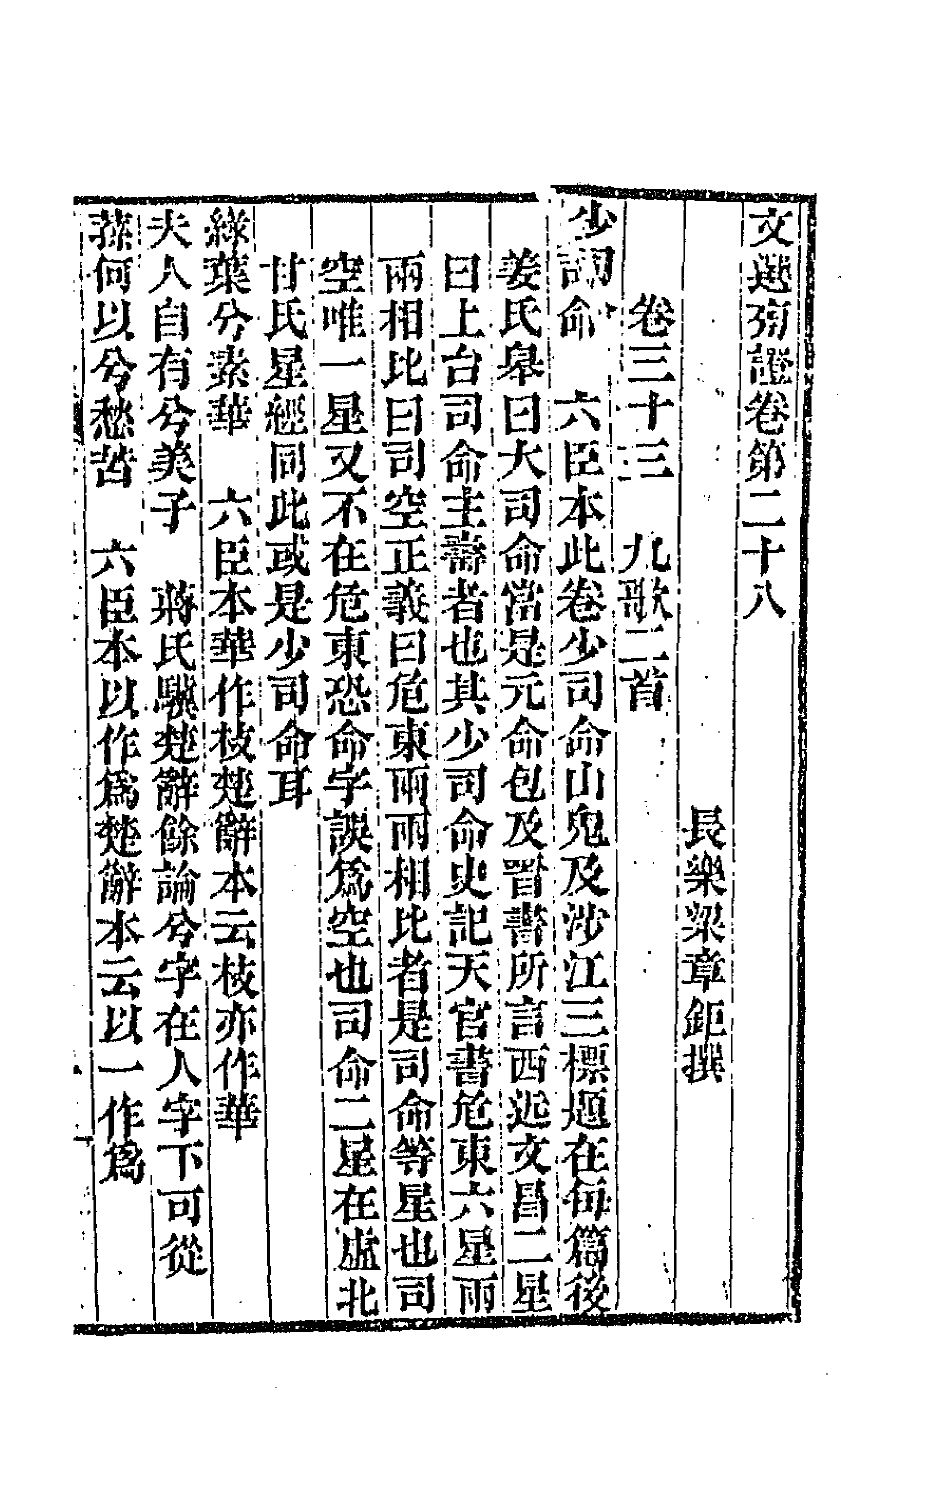 文選旁證卷第二十八
長樂梁章鉅撰
卷三十三　九歌二首
少司命　六臣本此卷少司命山鬼及涉江三標題在每篇後
姜氏皋曰大司命當是元命包及晉書所言西近文昌二星
曰上台司命主壽者也其少司命史記天官書危東六星兩
兩相比曰司空正義曰危東兩兩相比者是司命等星也司
空唯一星又不在危東恐命字誤爲空也司命二星在虛北
甘氏星經同此或是少司命耳
綠葉兮素華　六臣本華作枝楚辭本云枝亦作華
夫人自有兮美子　蔣氏驥楚辭餘論兮字在人字下可從
蓀何以兮愁苦　六臣本以作爲楚辭本云以一作爲